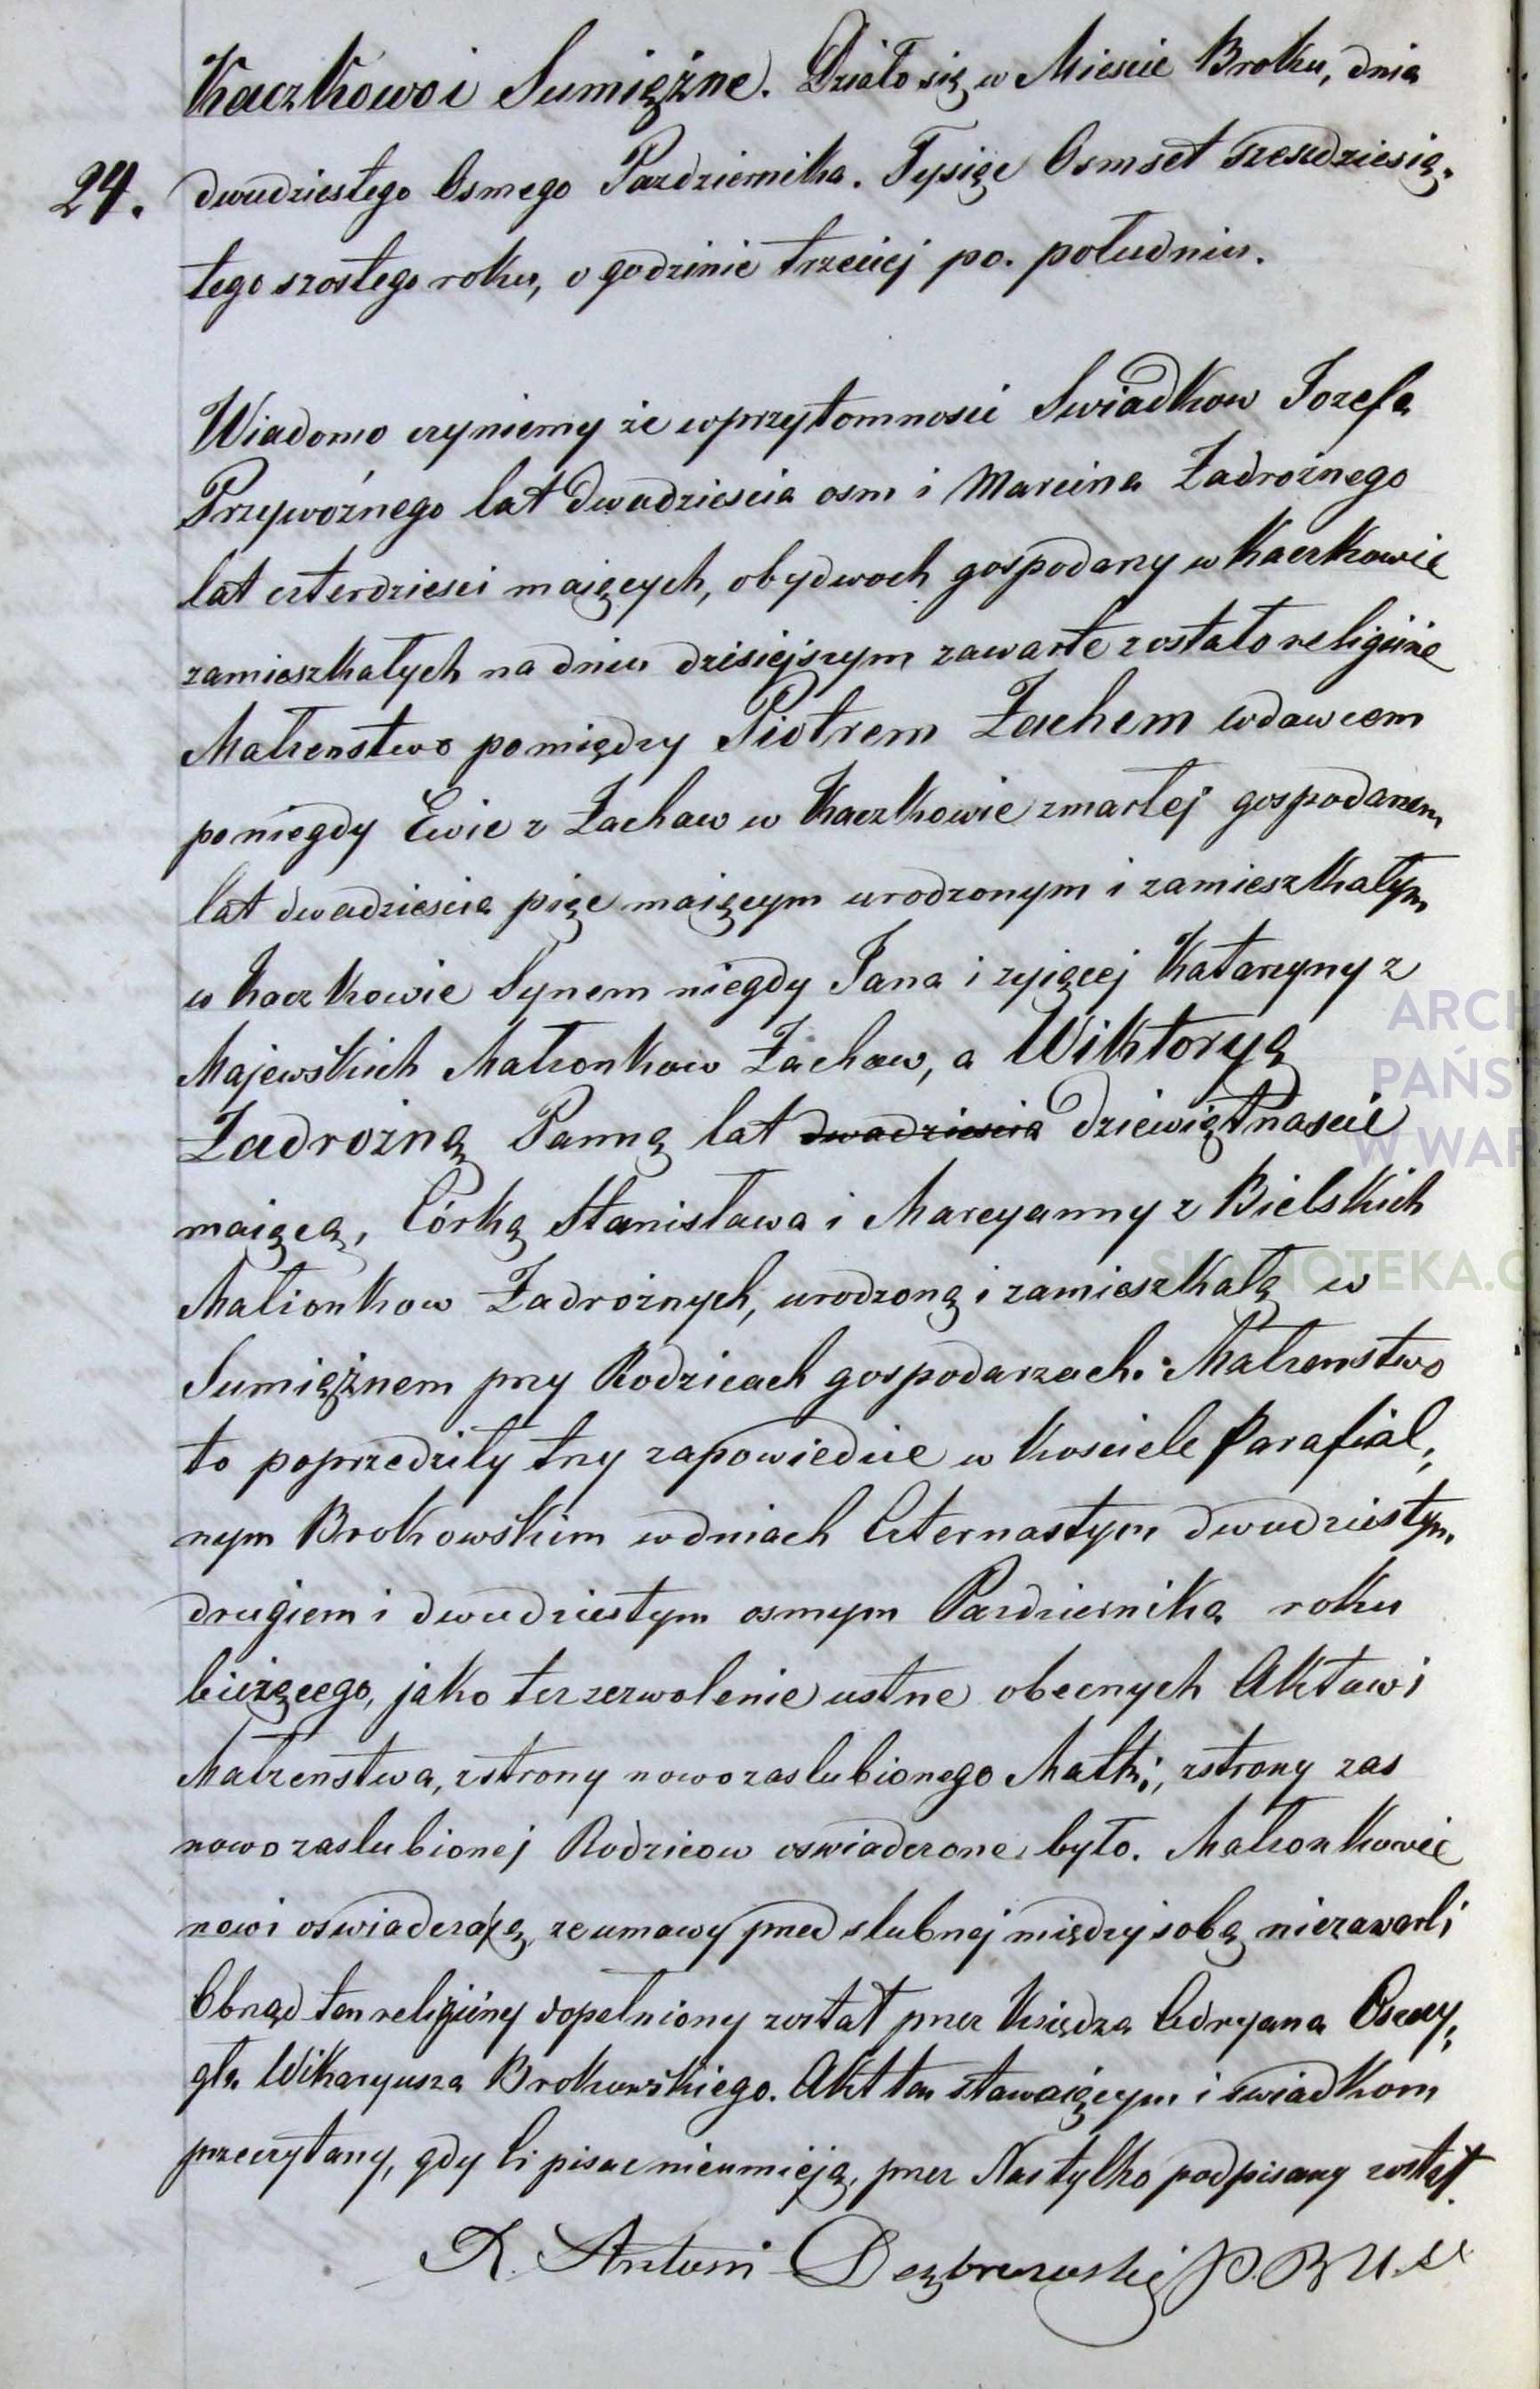 Kaczkowo i Sumiężne. Działo się w Miescie Broku, dnia
24. dwudziestego Osmego Pazdziernika. Tysiąc Osmset szescdziesią-
tego szostego roku, o godzinie trzeciej po. południu.
Wiadomo czyniemy że w przytomnosci Swiadkow Jozefa
Przywoźnego lat dwadziescia osm i Marcina Zadrożnego
lat czterdziesci maiących, obydwoch gospodarzy w Kaczkowie
zamieszkałych na dniu dzisiejszym zawarte zostało religijne
Małżenstwo pomiędzy Piotrem Zachem wdowcem
po niegdy Ewie z Zachow w Kaczkowie zmarłej gospodarzem
lat dwadziescia pięc maiącym urodzonym i zamieszkałym
w Kaczkowie Synem niegdy Jana i zyiącej Katarzyny z
Majewskich Małżonkow Zachow, a Wiktoryą
Zadrożną Panną lat dwadziescia dziewiętnascie
maiącą, Córką Stanisława i Maryanny z Bielskich
Małżonkow Zadrożnych, urodzoną i zamieszkałą w
Sumiężnem przy Rodzicach gospodarzach. Małżenstwo
to poprzedziły trzy zapowiedzie w Kosciele Parafial-
nym Brokowskim w dniach Czternastym dwudziestym
drugiem i dwudziestym osmym Pazdziernika roku
bieżącego, jako też zezwolenie ustne obecnych Aktowi
Małżenstwa, z strony nowozaslubionego Matki, z strony zas
nowo zaslubionej Rodzicow oswiadczone było. Małżonkowie
nowi oswiadczają, ze umowy przedslubnej między sobą niezawarli
Obrząd ten religijny dopełniony został przez Księdza Adryana
Wikaryusza Brokowskiego. Akt ten stawaiącym i swiadkom
przeczytany, gdy ci pisac nieumieją, przez Nas tylko podpisany został.
X. Antoni P.B U.S.C
ARCH
PAŃS
W WAR
SKANOTEKA.